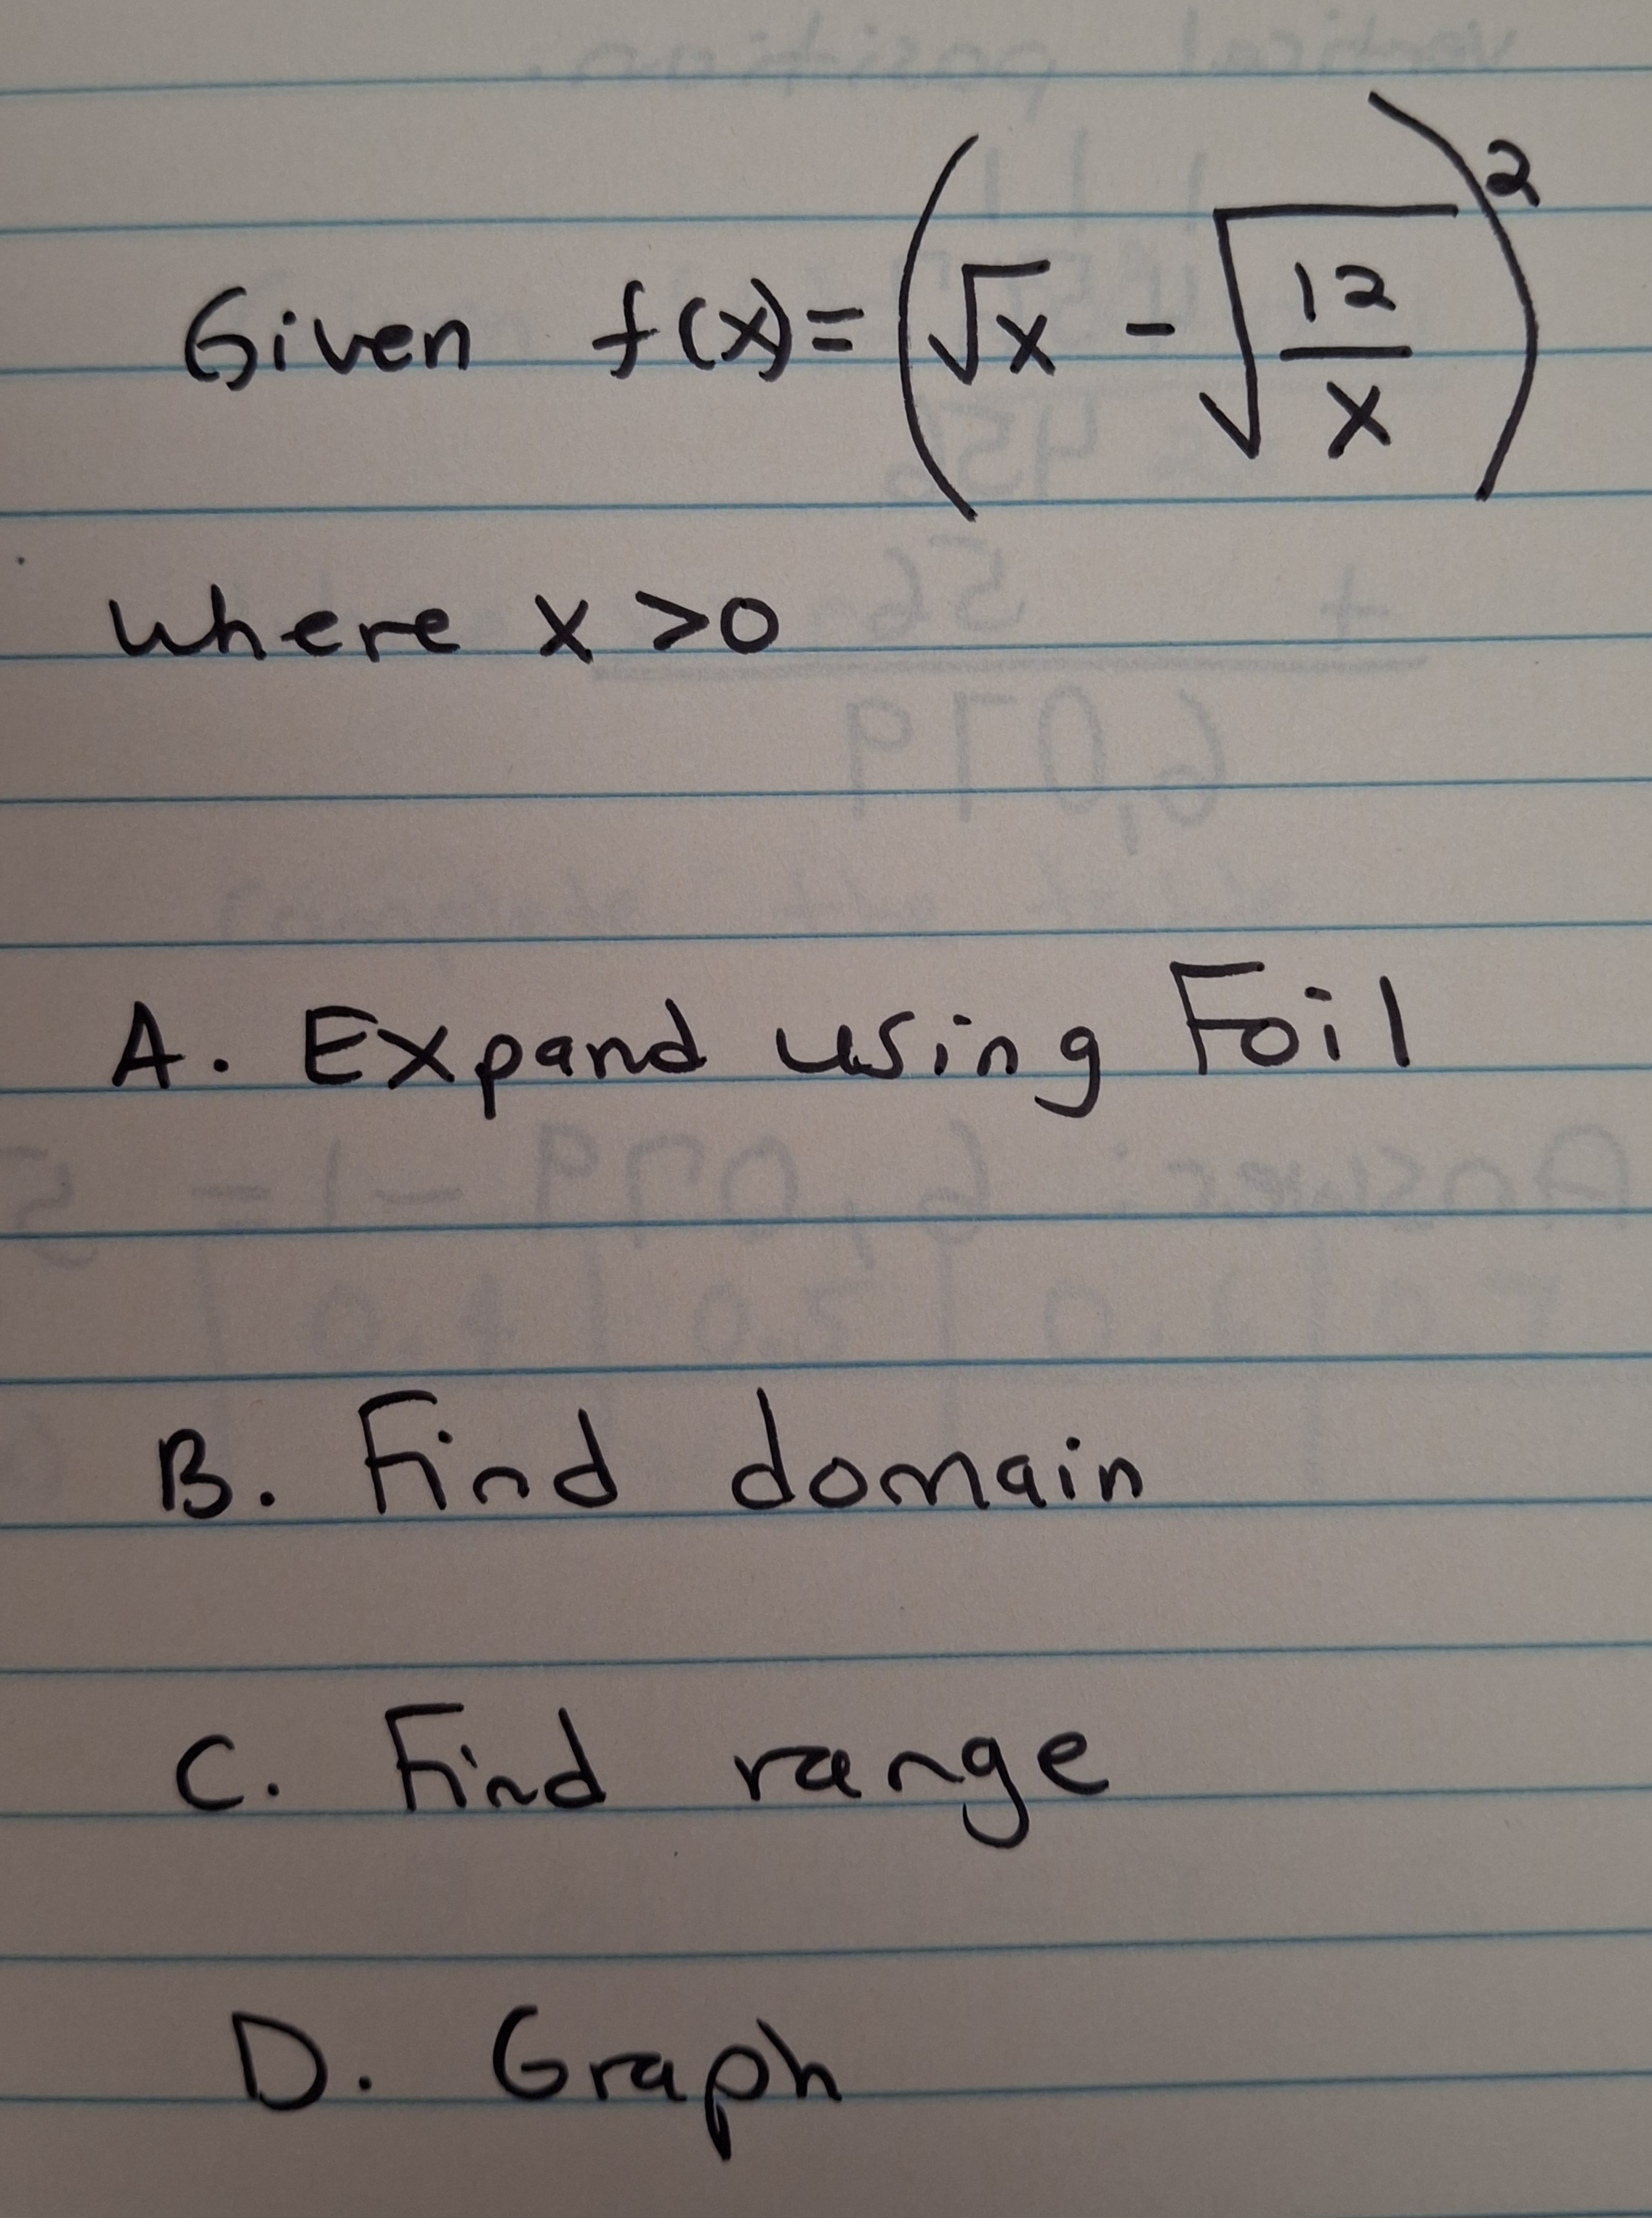 Given f(x) = (√x - √(12/x))²
where x > 0
A. Expand using Foil
B. Find domain
C. Find range
D. Graph